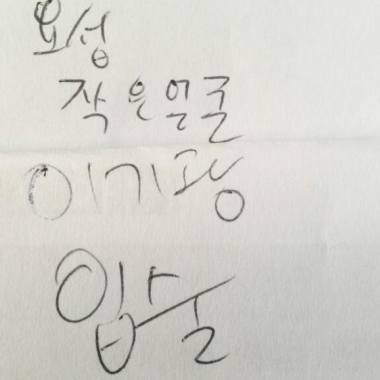 요섭
작은얼굴
이기광
입술